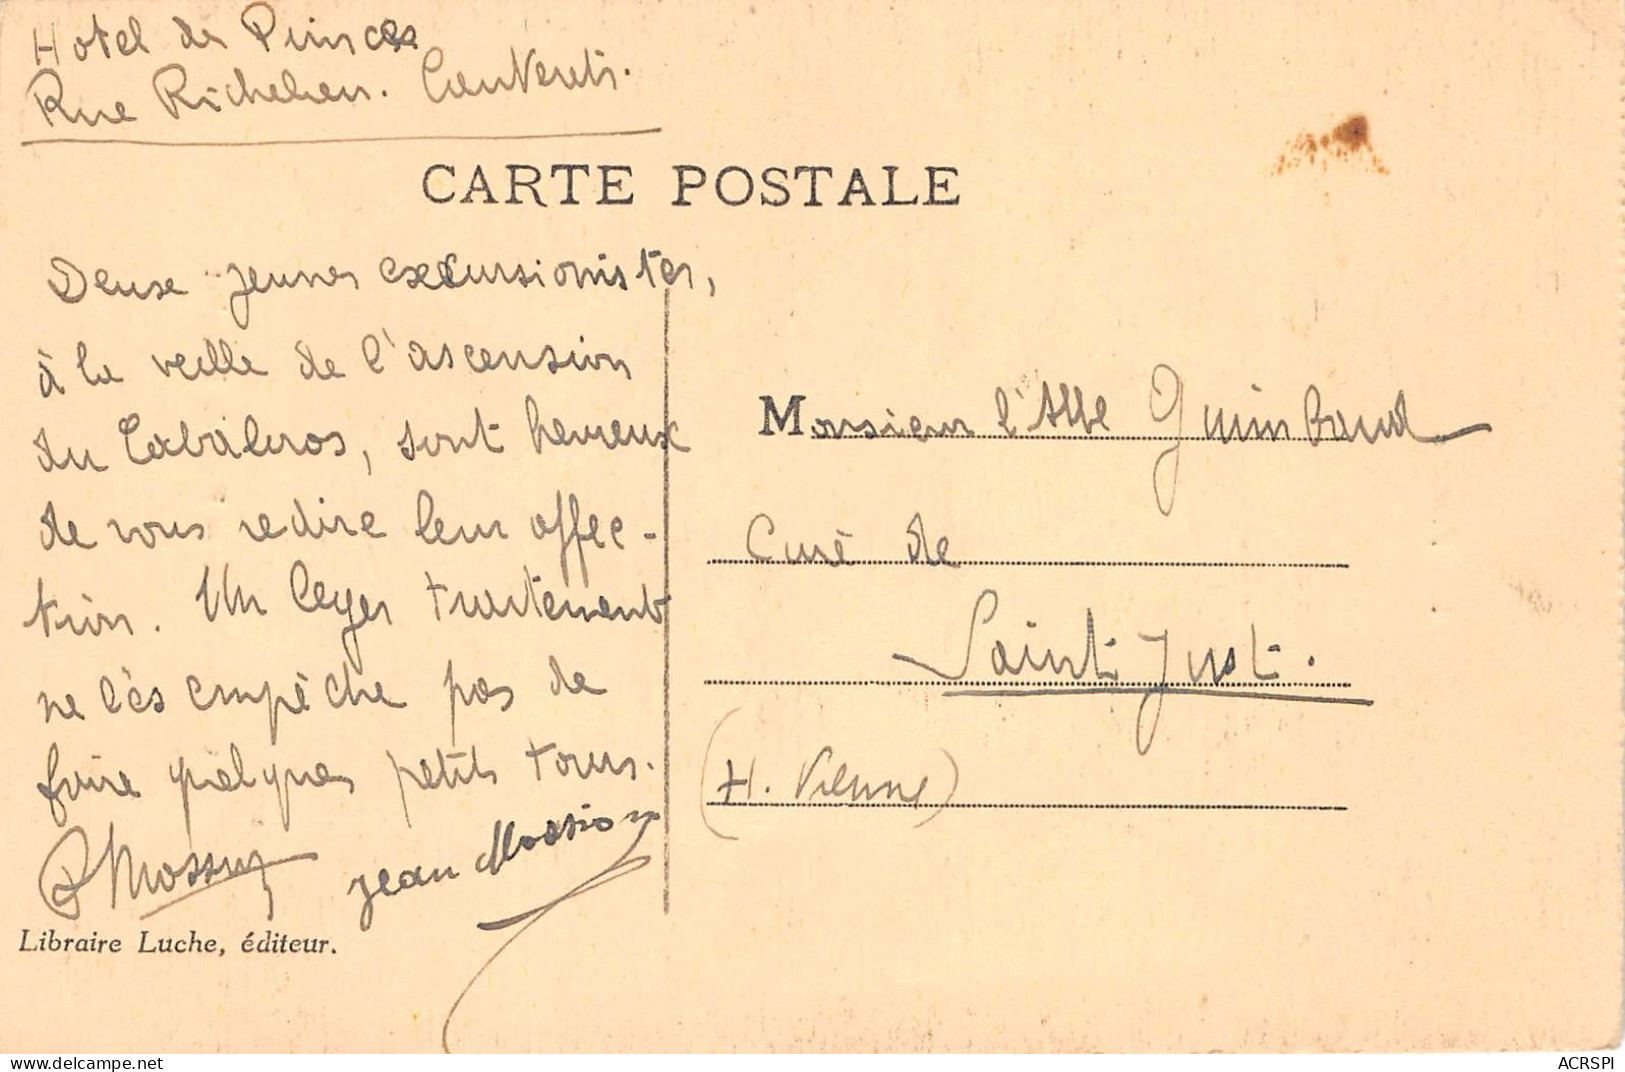 Hotel des Princes
Rue Richelieu. Cauterets.
CARTE POSTALE
Deux jeunes excursionistes,
à la veille de l'ascension
du Cabaliros, sont heureux
de vous redire leur affec-
tion. Un léger traitement
ne les empêche pas de
faire quelques petits tours.
Jean Massion
Libraire Luche, éditeur.
Monsieur l'Abbé Guimbaud
Curé de
Saint Just.
(H. Vienne)
delcampe.net
ACRSPI